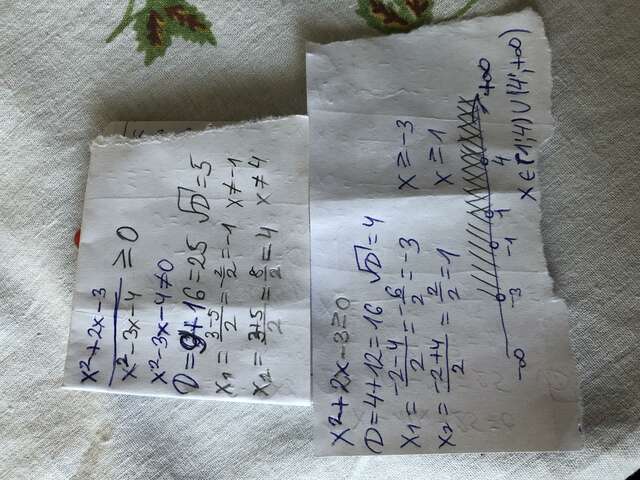 x²+2x-3
x²-3x-4 ≥0
x²-3x-4≠0
D=9+16=25 √D=5
x₁=3-5/2=-2/2=-1 x≠-1
x₂=3+5/2=8/2=4 x≠4
x²+2x-3≥0
D=4+12=16 √D=4
x₁=-2-4/2=-6/2=-3 x≥-3
x₂=-2+4/2=2/2=1 x≥1
-∞ -3 -1 1 4 +∞
x∈(1;4)∪(4;+∞)